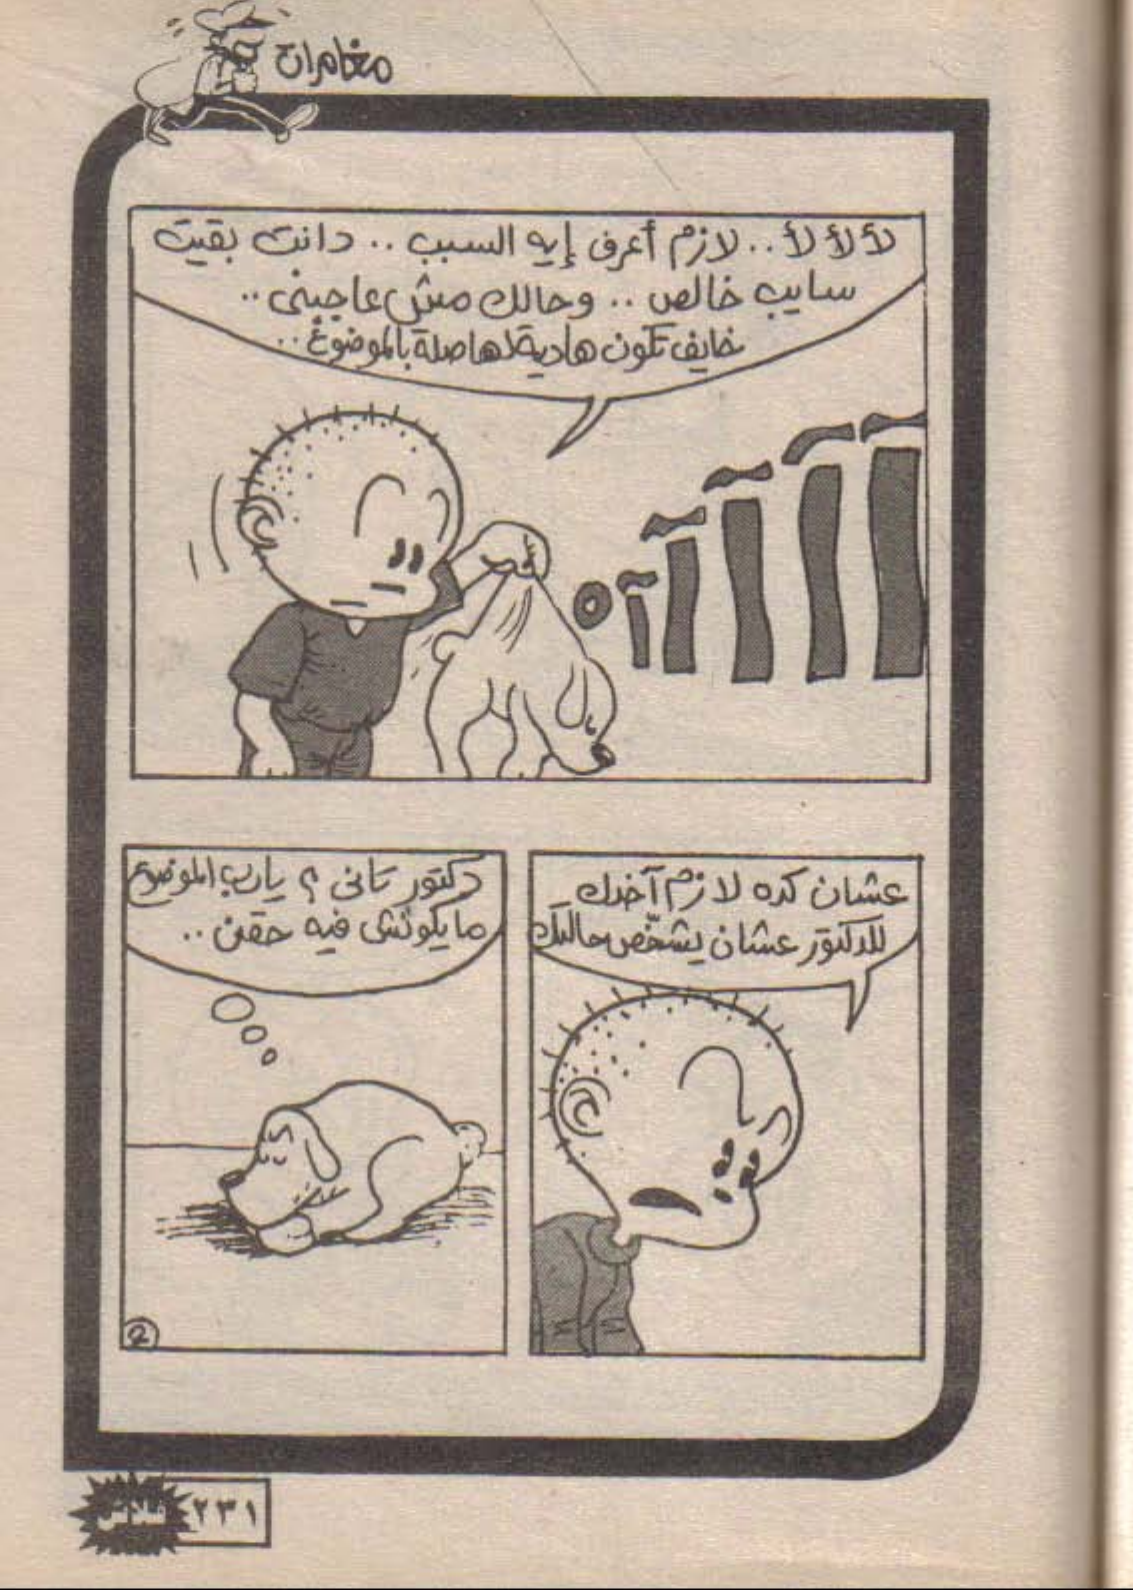 مغامرات
لأ لأ لأ .. لازم أعرف إيه السبب .. دانت بقيت
سايب خالص .. وحالك مش عاجبنى ..
خايف تكون هادية لها صلة بالموضوع ..
آآآآآه
عشان كده لازم آخدك
للدكتور عشان يشخّص حالتك
دكتور تانى ؟ يارب الموضوع
مايكونش فيه حقن ..
2
فلاش ٢٣١